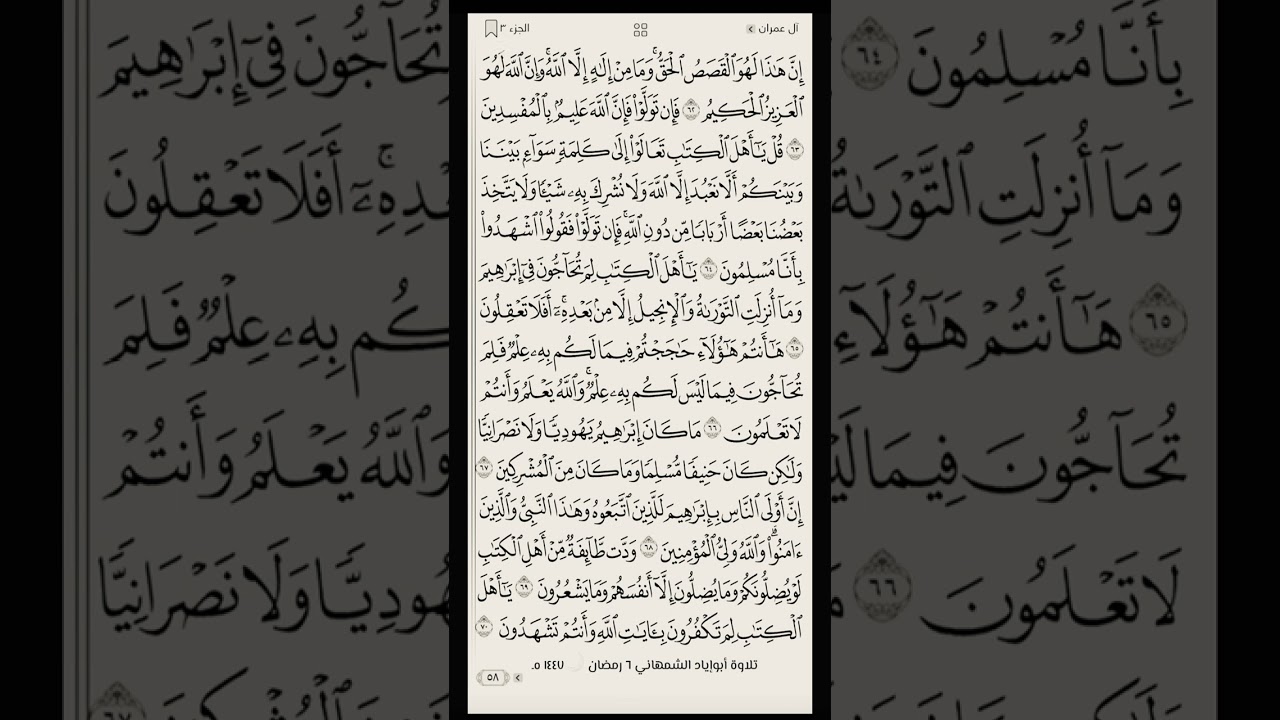 آل عمران
الجزء ٣
إِنَّ هَٰذَا لَهُوَ ٱلْقَصَصُ ٱلْحَقُّ ۚ وَمَا مِنْ إِلَٰهٍ إِلَّا ٱللَّهُ ۚ وَإِنَّ ٱللَّهَ لَهُوَ
ٱلْعَزِيزُ ٱلْحَكِيمُ ٦٢ فَإِن تَوَلَّوْا۟ فَإِنَّ ٱللَّهَ عَلِيمٌۢ بِٱلْمُفْسِدِينَ
٦٣ قُلْ يَٰٓأَهْلَ ٱلْكِتَٰبِ تَعَالَوْا۟ إِلَىٰ كَلِمَةٍ سَوَآءٍۭ بَيْنَنَا
وَبَيْنَكُمْ أَلَّا نَعْبُدَ إِلَّا ٱللَّهَ وَلَا نُشْرِكَ بِهِۦ شَيْـًٔا وَلَا يَتَّخِذَ
بَعْضُنَا بَعْضًا أَرْبَابًا مِّن دُونِ ٱللَّهِ ۚ فَإِن تَوَلَّوْا۟ فَقُولُوا۟ ٱشْهَدُوا۟
بِأَنَّا مُسْلِمُونَ ٦٤ يَٰٓأَهْلَ ٱلْكِتَٰبِ لِمَ تُحَآجُّونَ فِىٓ إِبْرَٰهِيمَ
وَمَآ أُنزِلَتِ ٱلتَّوْرَىٰةُ وَٱلْإِنجِيلُ إِلَّا مِنۢ بَعْدِهِۦٓ ۚ أَفَلَا تَعْقِلُونَ
٦٥ هَٰٓأَنتُمْ هَٰٓؤُلَآءِ حَٰجَجْتُمْ فِيمَا لَكُم بِهِۦ عِلْمٌ فَلِمَ
تُحَآجُّونَ فِيمَا لَيْسَ لَكُم بِهِۦ عِلْمٌ ۚ وَٱللَّهُ يَعْلَمُ وَأَنتُمْ
لَا تَعْلَمُونَ ٦٦ مَا كَانَ إِبْرَٰهِيمُ يَهُودِيًّا وَلَا نَصْرَانِيًّا
وَلَٰكِن كَانَ حَنِيفًا مُّسْلِمًا وَمَا كَانَ مِنَ ٱلْمُشْرِكِينَ ٦٧
إِنَّ أَوْلَى ٱلنَّاسِ بِإِبْرَٰهِيمَ لَلَّذِينَ ٱتَّبَعُوهُ وَهَٰذَا ٱلنَّبِىُّ وَٱلَّذِينَ
ءَامَنُوا۟ ۗ وَٱللَّهُ وَلِىُّ ٱلْمُؤْمِنِينَ ٦٨ وَدَّت طَّآئِفَةٌ مِّنْ أَهْلِ ٱلْكِتَٰبِ
لَوْ يُضِلُّونَكُمْ وَمَا يُضِلُّونَ إِلَّآ أَنفُسَهُمْ وَمَا يَشْعُرُونَ ٦٩ يَٰٓأَهْلَ
ٱلْكِتَٰبِ لِمَ تَكْفُرُونَ بِـَٔايَٰتِ ٱللَّهِ وَأَنتُمْ تَشْهَدُونَ ٧٠
تلاوة أبوإياد الشمهاني ٦ رمضان ١٤٤٧ ه.
٥٨